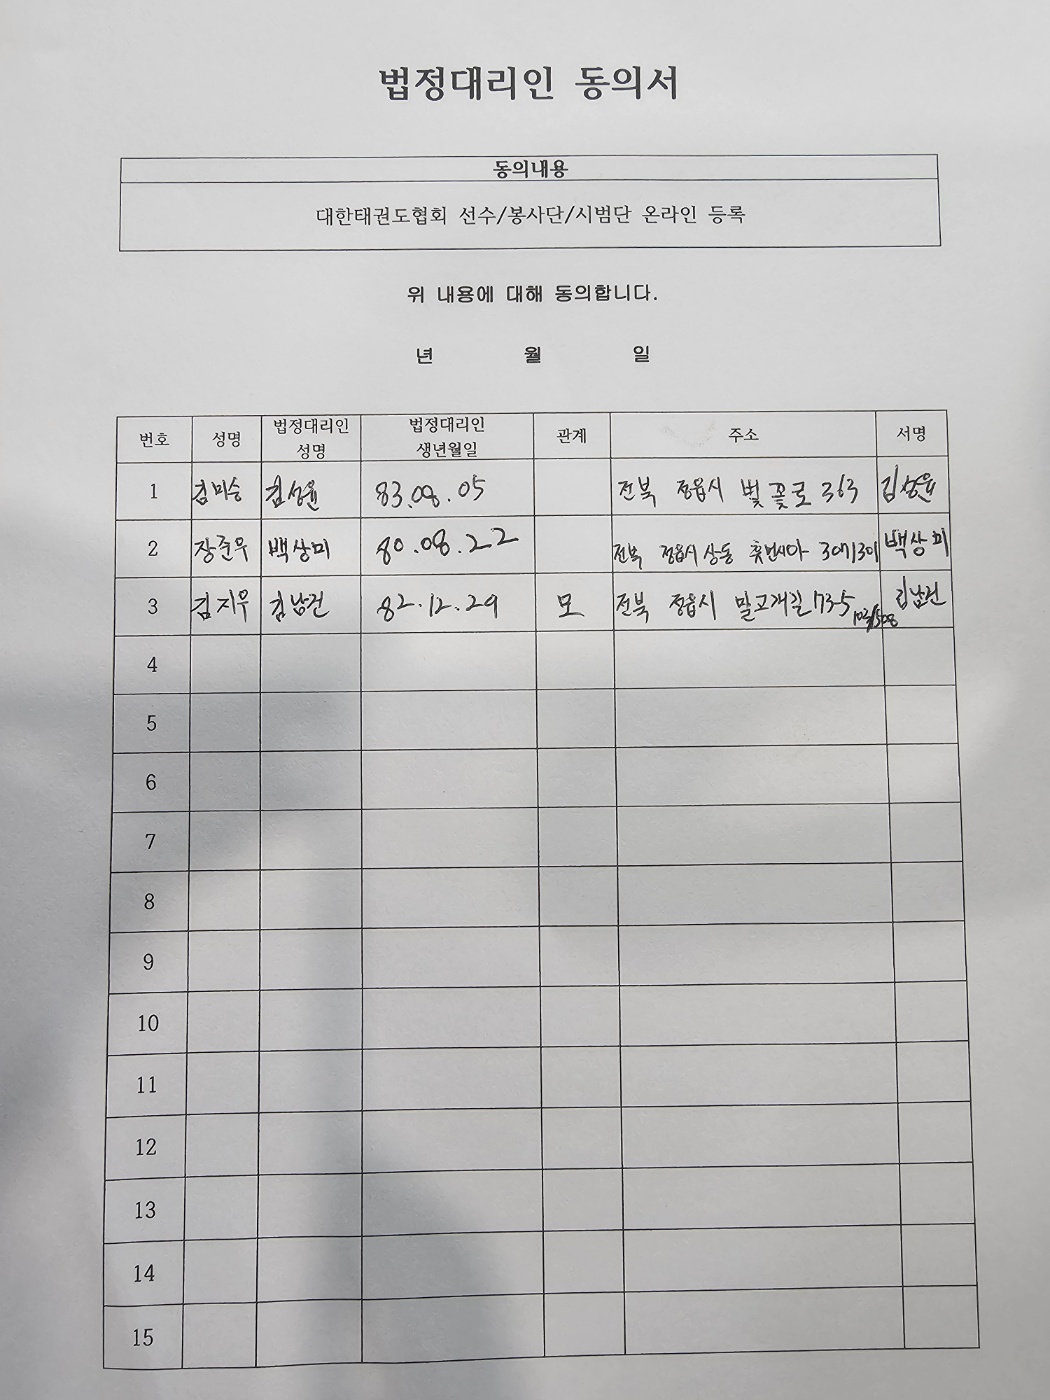 법정대리인 동의서
동의내용
대한태권도협회 선수/봉사단/시범단 온라인 등록
위 내용에 대해 동의합니다.
년 월 일
번호 성명 법정대리인 성명 법정대리인 생년월일 관계 주소 서명
1 김미승 김성윤 83.08.05 전북 정읍시 벚꽃로 363 김성윤
2 장준우 백상미 80.08.22 전북 정읍시 상동 백상미
3 김지우 김남건 82.12.29 모 전북 정읍시 말고개길 173-5 김남건
102/508
4
5
6
7
8
9
10
11
12
13
14
15